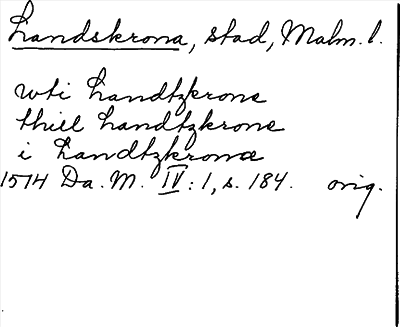 Landskrona, stad, Malm. l.
wti Landtzkrone
thill Landtzkrone
i Landtzkrona
1574 Da. M. IV: 1, s. 184. orig.